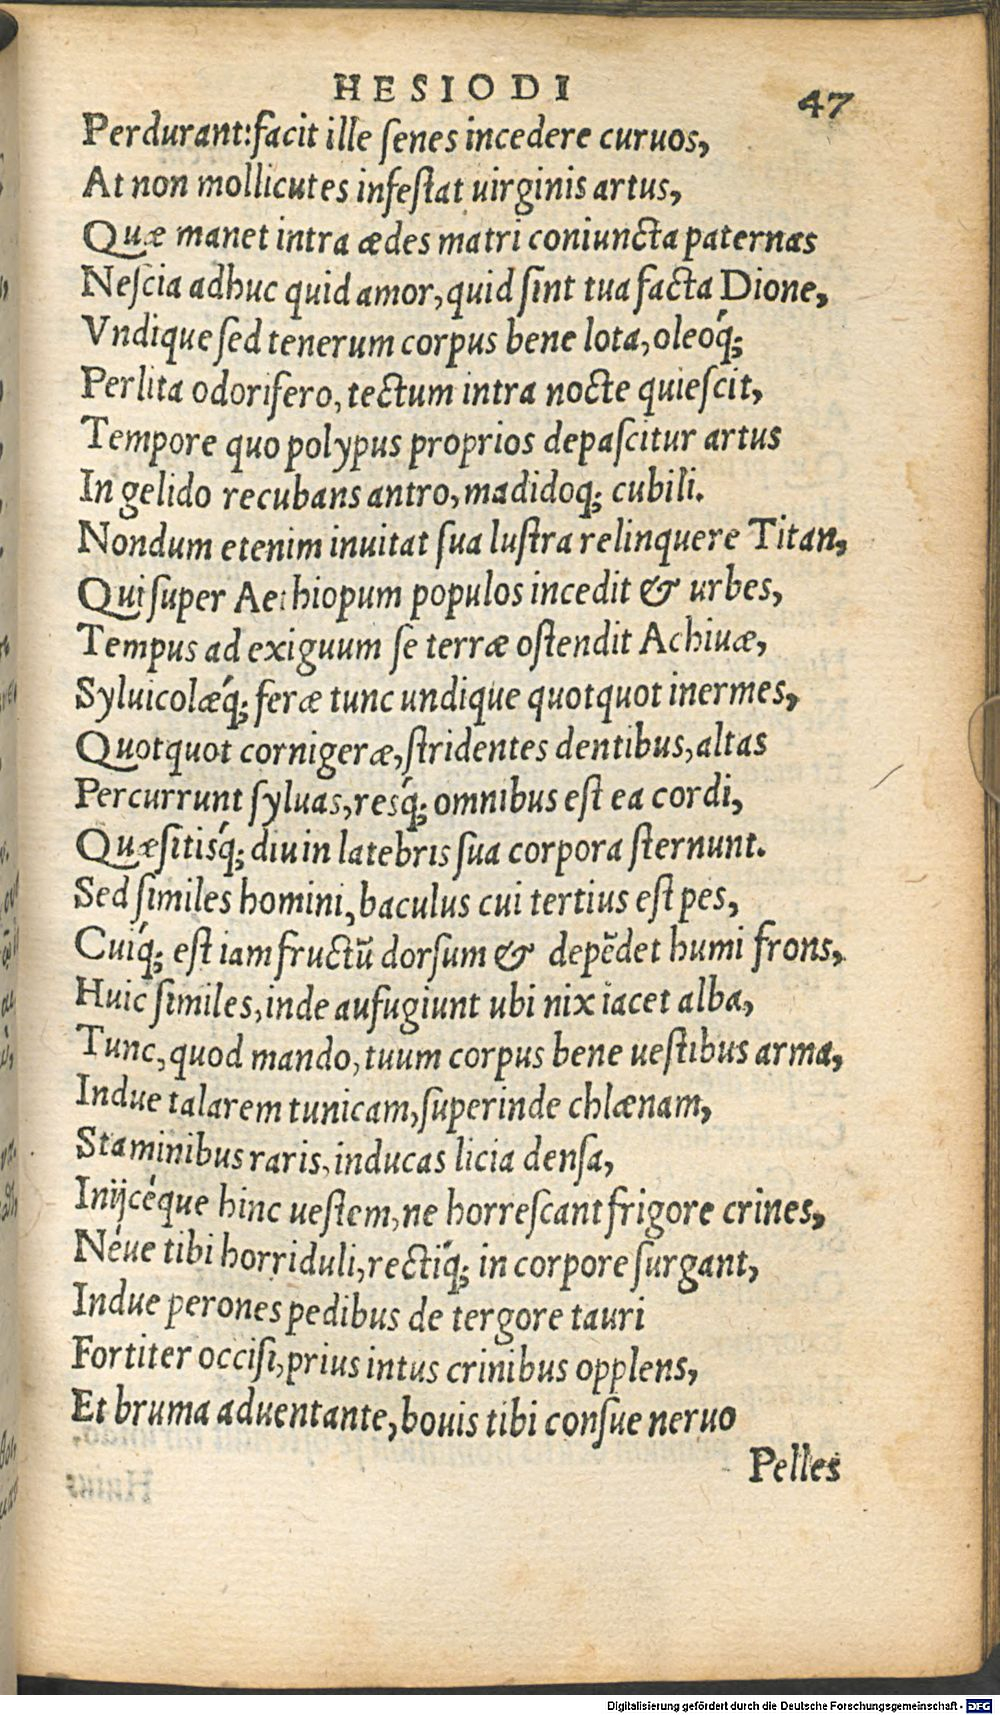 HESIODI
47
Perdurant: facit ille ſenes incedere curuos,
At non mollicutes infeſtat uirginis artus,
Quæ manet intra ædes matri coniuncta paternas
Neſcia adhuc quid amor, quid ſint tua facta Dione,
Vndique ſed tenerum corpus bene lota, oleoq́;
Perlita odorifero, tectum intra nocte quieſcit,
Tempore quo polypus proprios depaſcitur artus
In gelido recubans antro, madidoq; cubili.
Nondum etenim inuitat ſua luſtra relinquere Titan,
Qui ſuper Aethiopum populos incedit & urbes,
Tempus ad exiguum ſe terræ oſtendit Achiuæ,
Syluicolæq́; feræ tunc undique quotquot inermes,
Quotquot cornigeræ, ſtridentes dentibus, altas
Percurrunt ſyluas, resq́; omnibus eſt ea cordi,
Quæſitisq́; diu in latebris ſua corpora ſternunt.
Sed ſimiles homini, baculus cui tertius eſt pes,
Cuiq́; eſt iam fructũ dorſum & depẽdet humi frons,
Huic ſimiles, inde aufugiunt ubi nix iacet alba,
Tunc, quod mando, tuum corpus bene ueſtibus arma,
Indue talarem tunicam, ſuperinde chlænam,
Staminibus raris, inducas licia denſa,
Inijcéque hinc ueſtem, ne horreſcant frigore crines,
Néue tibi horriduli, rectiq́; in corpore ſurgant,
Indue perones pedibus de tergore tauri
Fortiter occiſi, prius intus crinibus opplens,
Et bruma aduentante, bouis tibi conſue neruo
Pelles
Digitalisierung gefördert durch die Deutsche Forschungsgemeinschaft - DFG